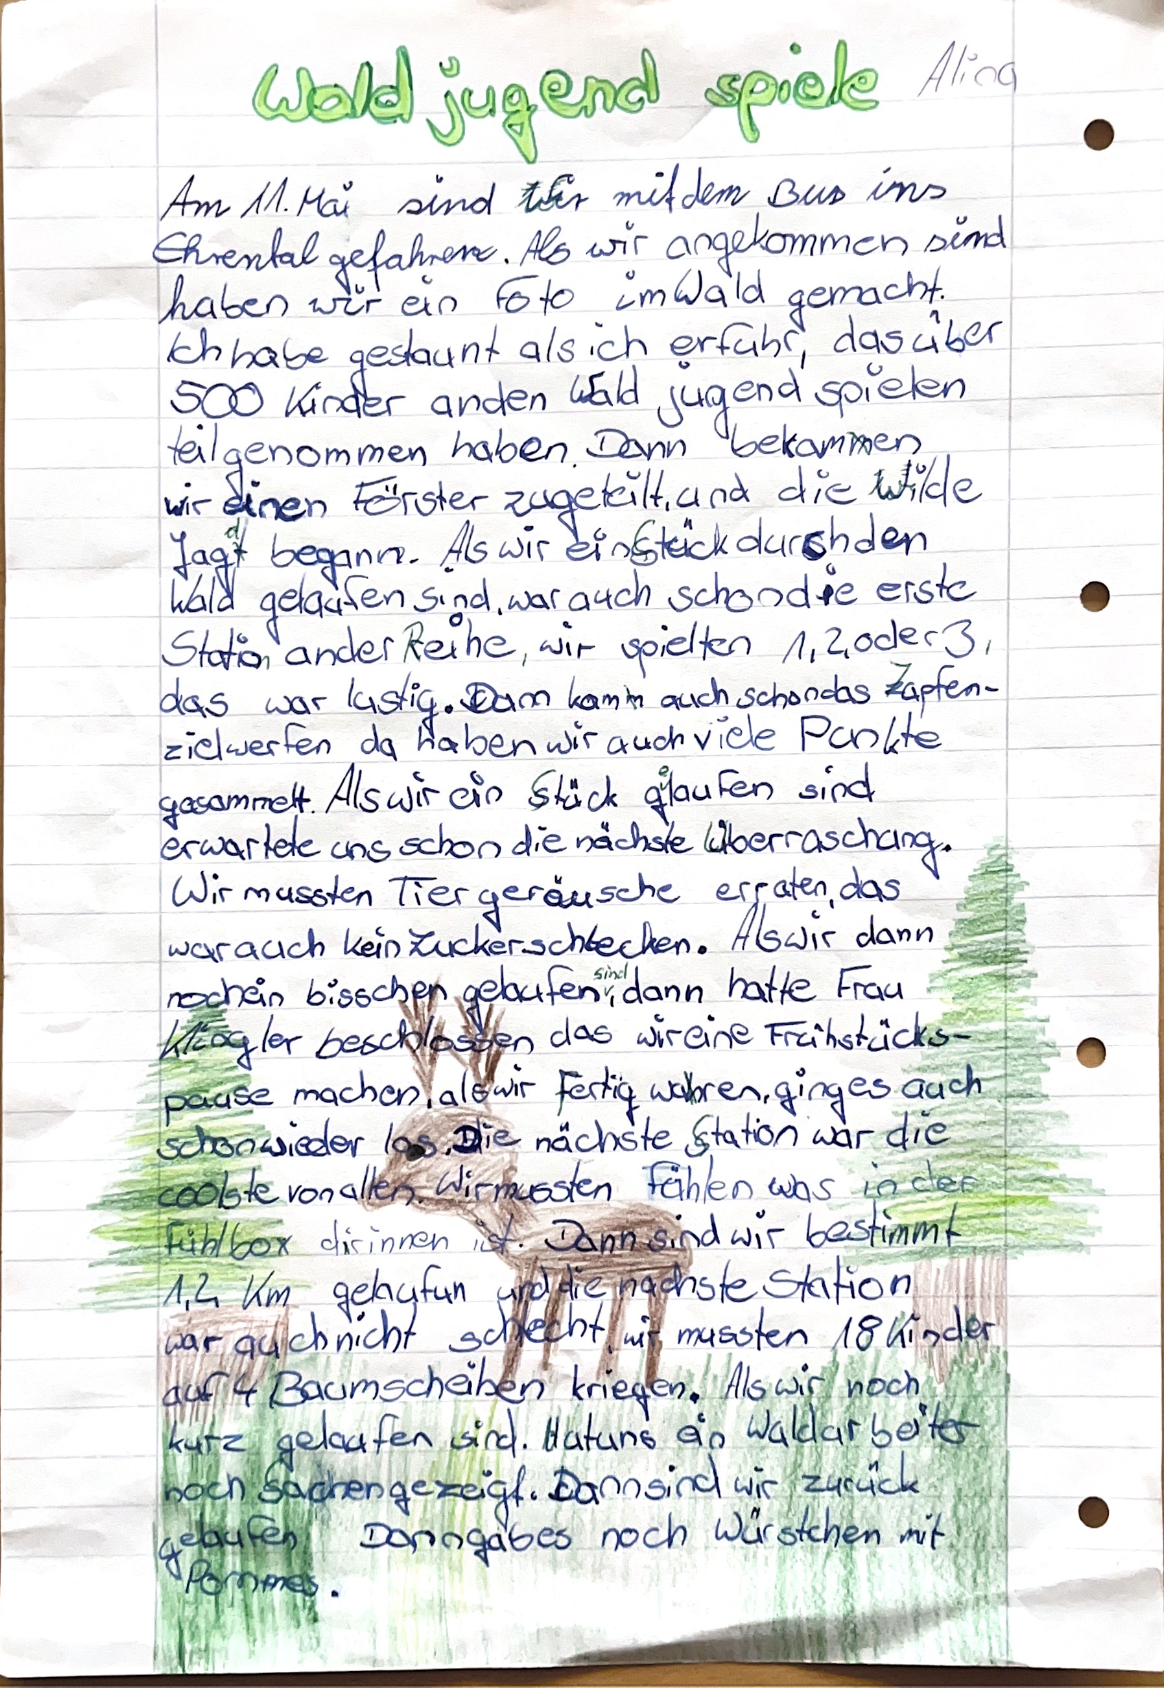 Waldjugendspiele Alina
Am 11. Mai sind wir mit dem Bus ins
Ehrental gefahren. Als wir angekommen sind
haben wir ein Foto im Wald gemacht.
Ich habe gestaunt als ich erfuhr, das über
500 Kinder an den Waldjugendspielen
teilgenommen haben. Dann bekammen
wir einen Förster zugeteilt, und die wilde
Jagd begann. Als wir ein Stück durch den
Wald gelaufen sind, war auch schon die erste
Station an der Reihe, wir spielten 1, 2, oder 3,
das war lustig. Dann kam auch schon das Zapfen-
zielwerfen da haben wir auch viele Punkte
gesammelt. Als wir ein Stück gelaufen sind
erwartete uns schon die nächste Überraschung.
Wir mussten Tiergeräusche erraten, das
war auch kein Zuckerschlecken. Als wir dann
noch ein bisschen gelaufen sind, dann hatte Frau
Klingler beschlossen das wir eine Frühstücks-
pause machen, als wir fertig wahren, ging es auch
schon wieder los. Die nächste Station war die
coolste von allen. Wir mussten Fühlen was in der
Fühlbox dirinnen ist. Dann sind wir bestimmt
1,2 Km gelaufun und die nächste Station
war auch nicht schlecht, wir mussten 18 Kinder
auf 4 Baumscheiben kriegen. Als wir noch
kurz gelaufen sind. Hat uns ein Waldarbeiter
noch Sachen gezeigt. Dann sind wir zurück
gelaufen Dann gab es noch Würstchen mit
Pommes.